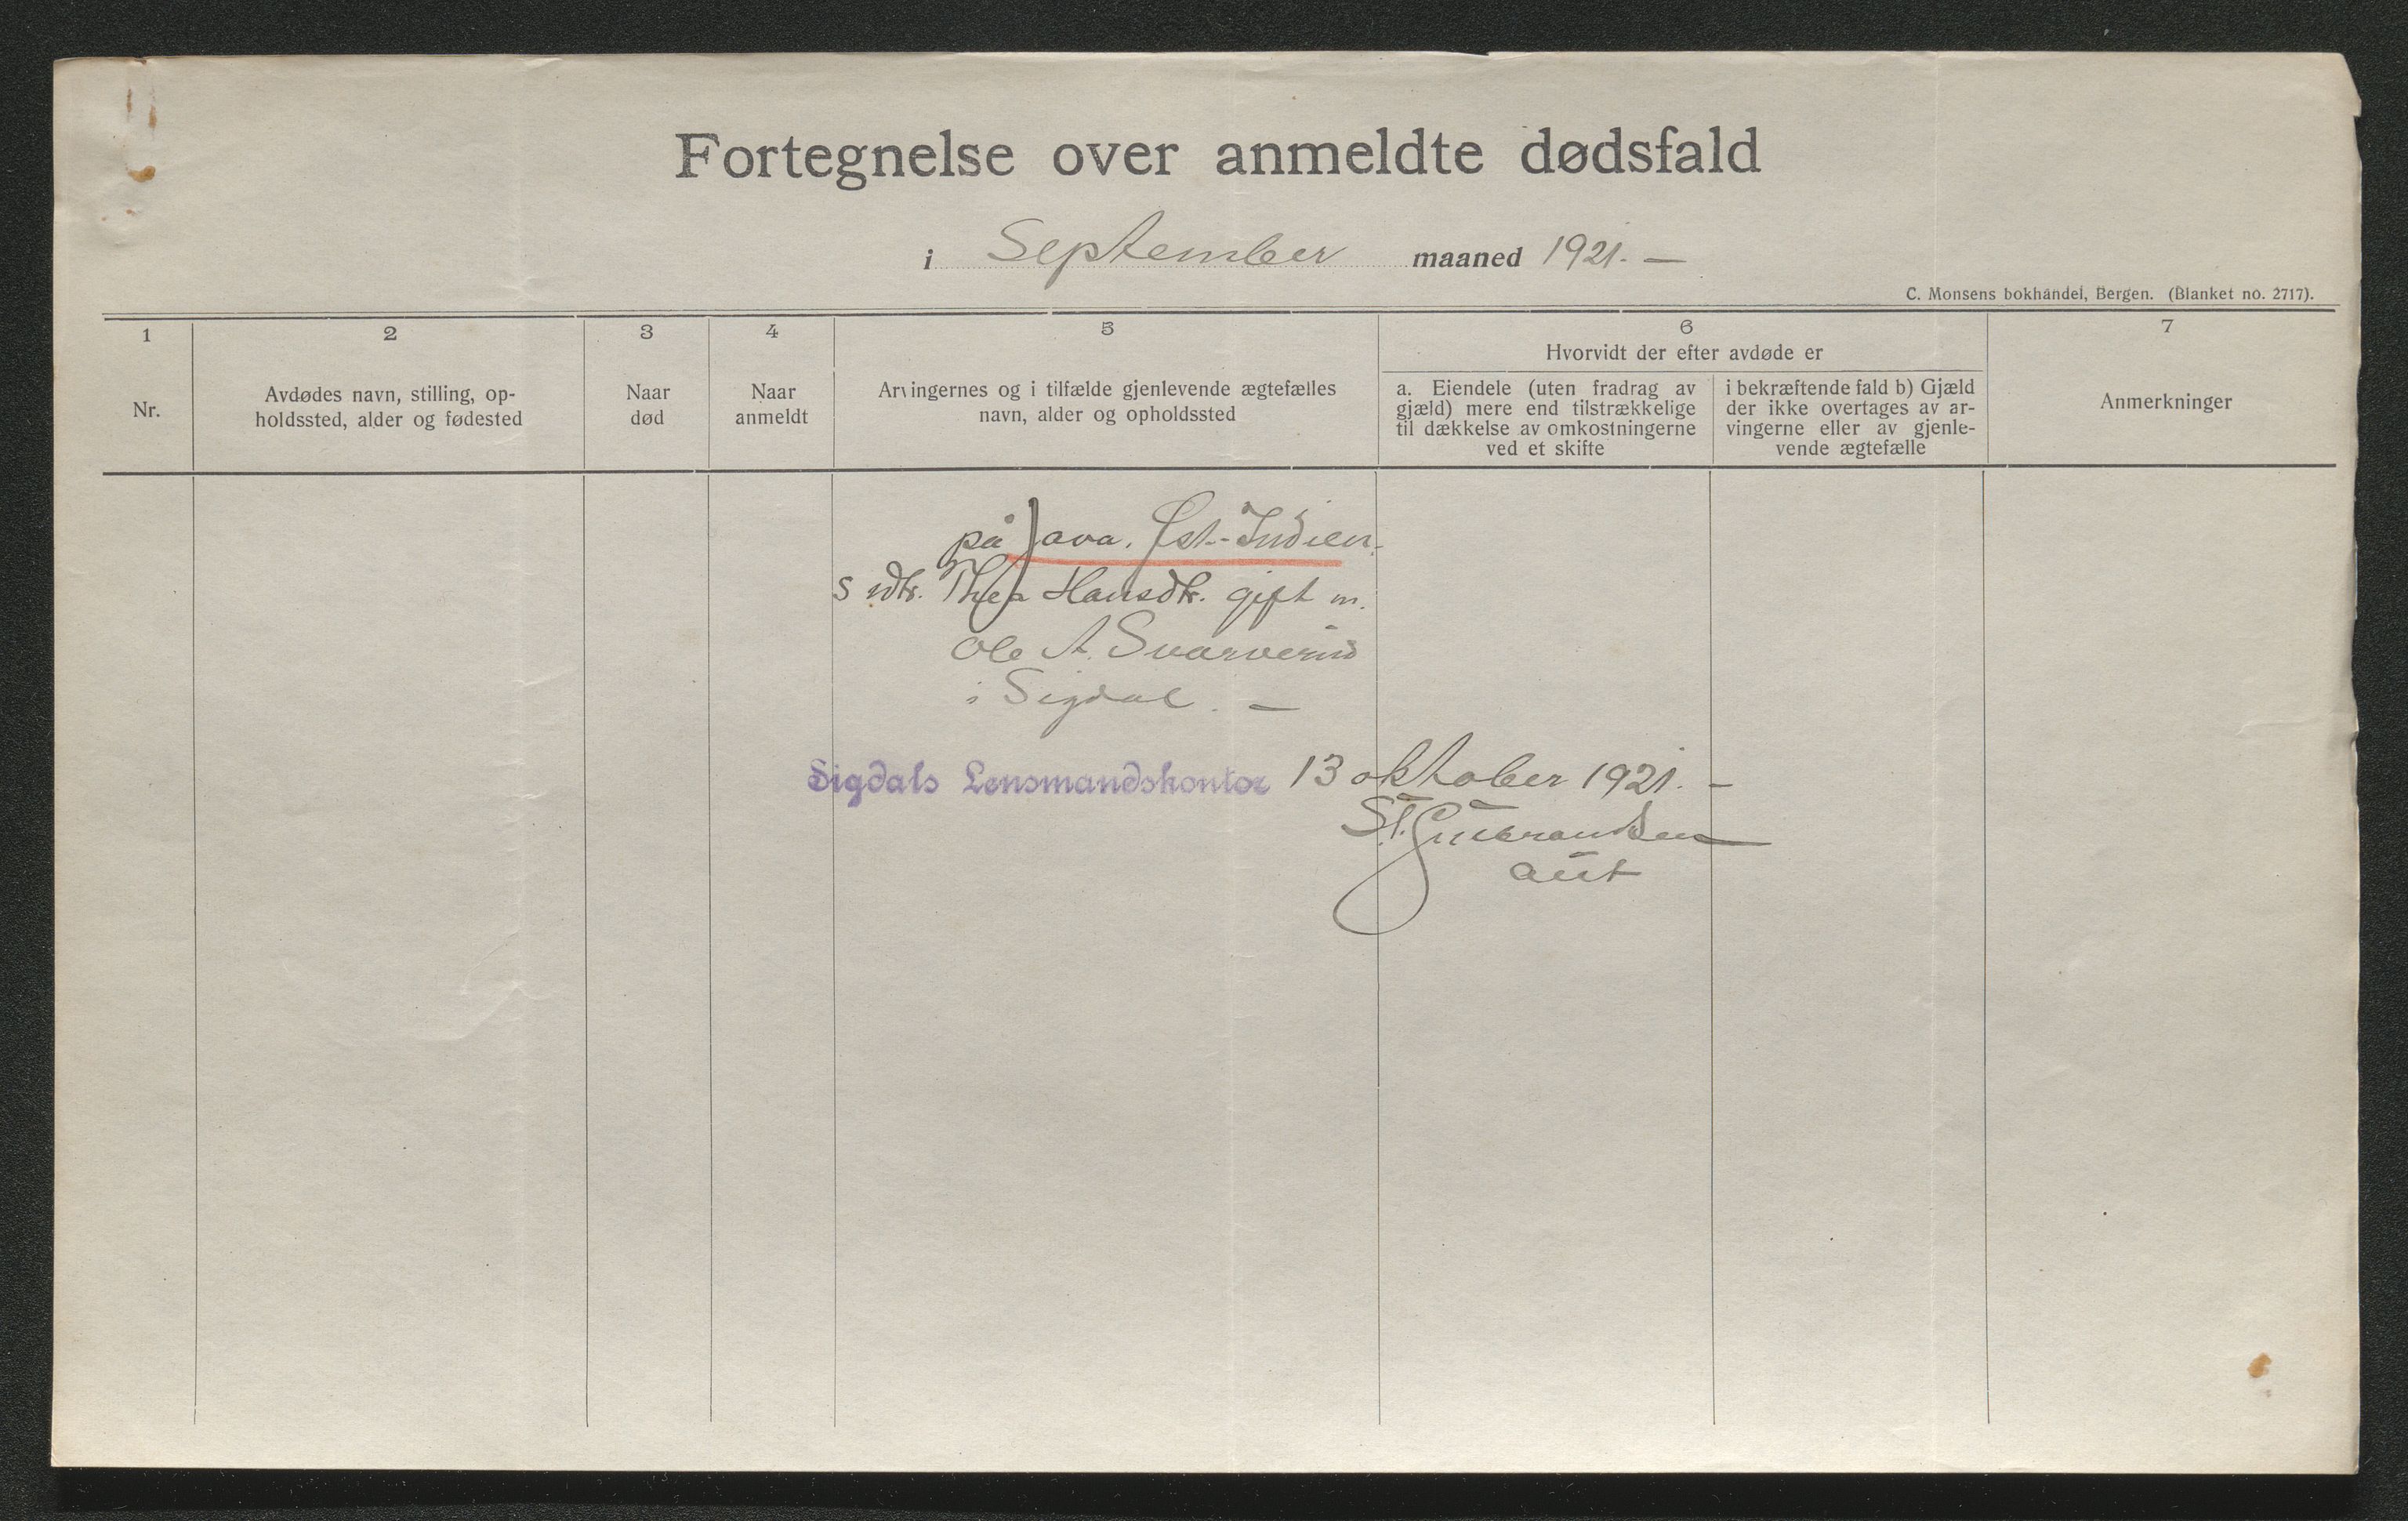 Fortegnelse over anmeldte dødsfald
i September maaned 1921. —
C. Monsens bokhandel, Bergen. (Blanket no. 2717).
1
2
3
4
5
6
7
Nr.
Avdødes navn, stilling, op-
holdssted, alder og fødested
Naar
død
Naar
anmeldt
Arvingernes og i tilfælde gjenlevende ægtefælles
navn, alder og opholdssted
Hvorvidt der efter avdøde er
a. Eiendele (uten fradrag av
gjæld) mere end tilstrækkelige
til dækkelse av omkostningerne
ved et skifte
i bekræftende fald b) Gjæld
der ikke overtages av ar-
vingerne eller av gjenle-
vende ægtefælle
Anmerkninger
på Java. Øst-Indien.
Thea Hansdtr. gift m.
Ole A.
i Sigdal. —
Sigdals Lensmandskontor 13 oktober 1921. —
St. Gulbrandsen
aut